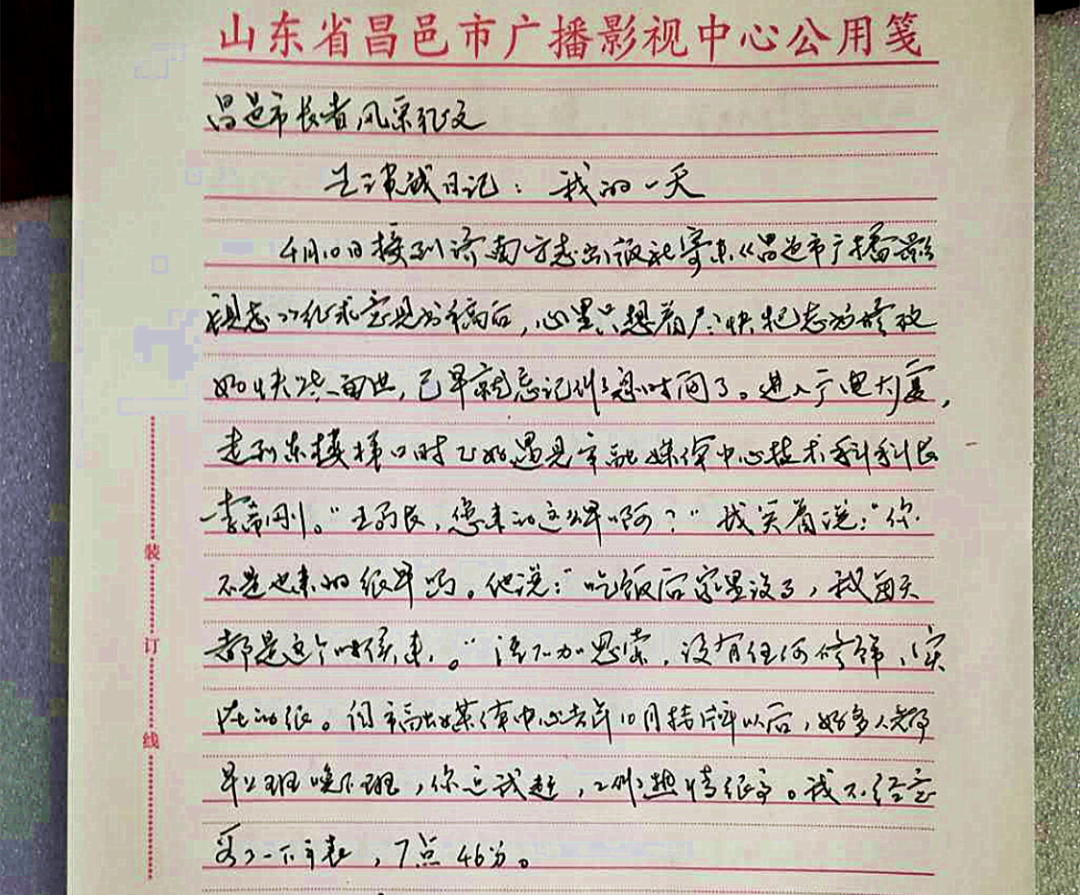 山东省昌邑市广播影视中心公用笺
昌邑市长者风采征文
王洪成日记：我的一天
4月10日接到济南方志出版社寄来《昌邑市广播影
视志》征求意见书稿后，心里只想着尽快把志书修改
好快些面世，已早就忘记作息时间了。进入广电大厦，
走到东楼梯口时正好遇见市融媒体中心技术科科长
李刚。“王局长，您来的这么早啊？”我笑着说：“你
不是也来的很早吗。他说：“吃饭后家里没事，我每天
都是这个时候来。”语不加思索，没有任何修饰，实
在的很。自市融媒体中心去年10月挂牌以后，好多人都
早上班晚下班，你追我赶，工作热情很高。我不经意
看了一下手表，7点46分。
装
订
线